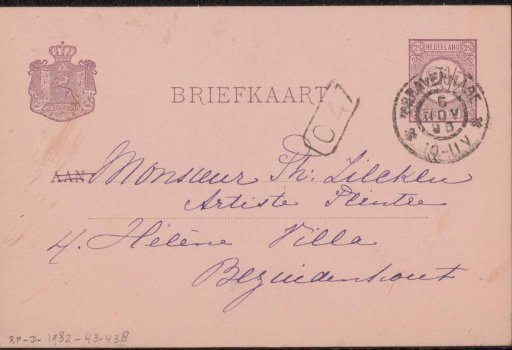 NEDERLAND
BRIEFKAART
'S GRAVENHAGE
5
NOV
10-11V
AAN Monsieur Ph: Zilcken
Artiste Peintre
4. Hélène Villa
Bezuidenhout
RP-D-1982-43-43B